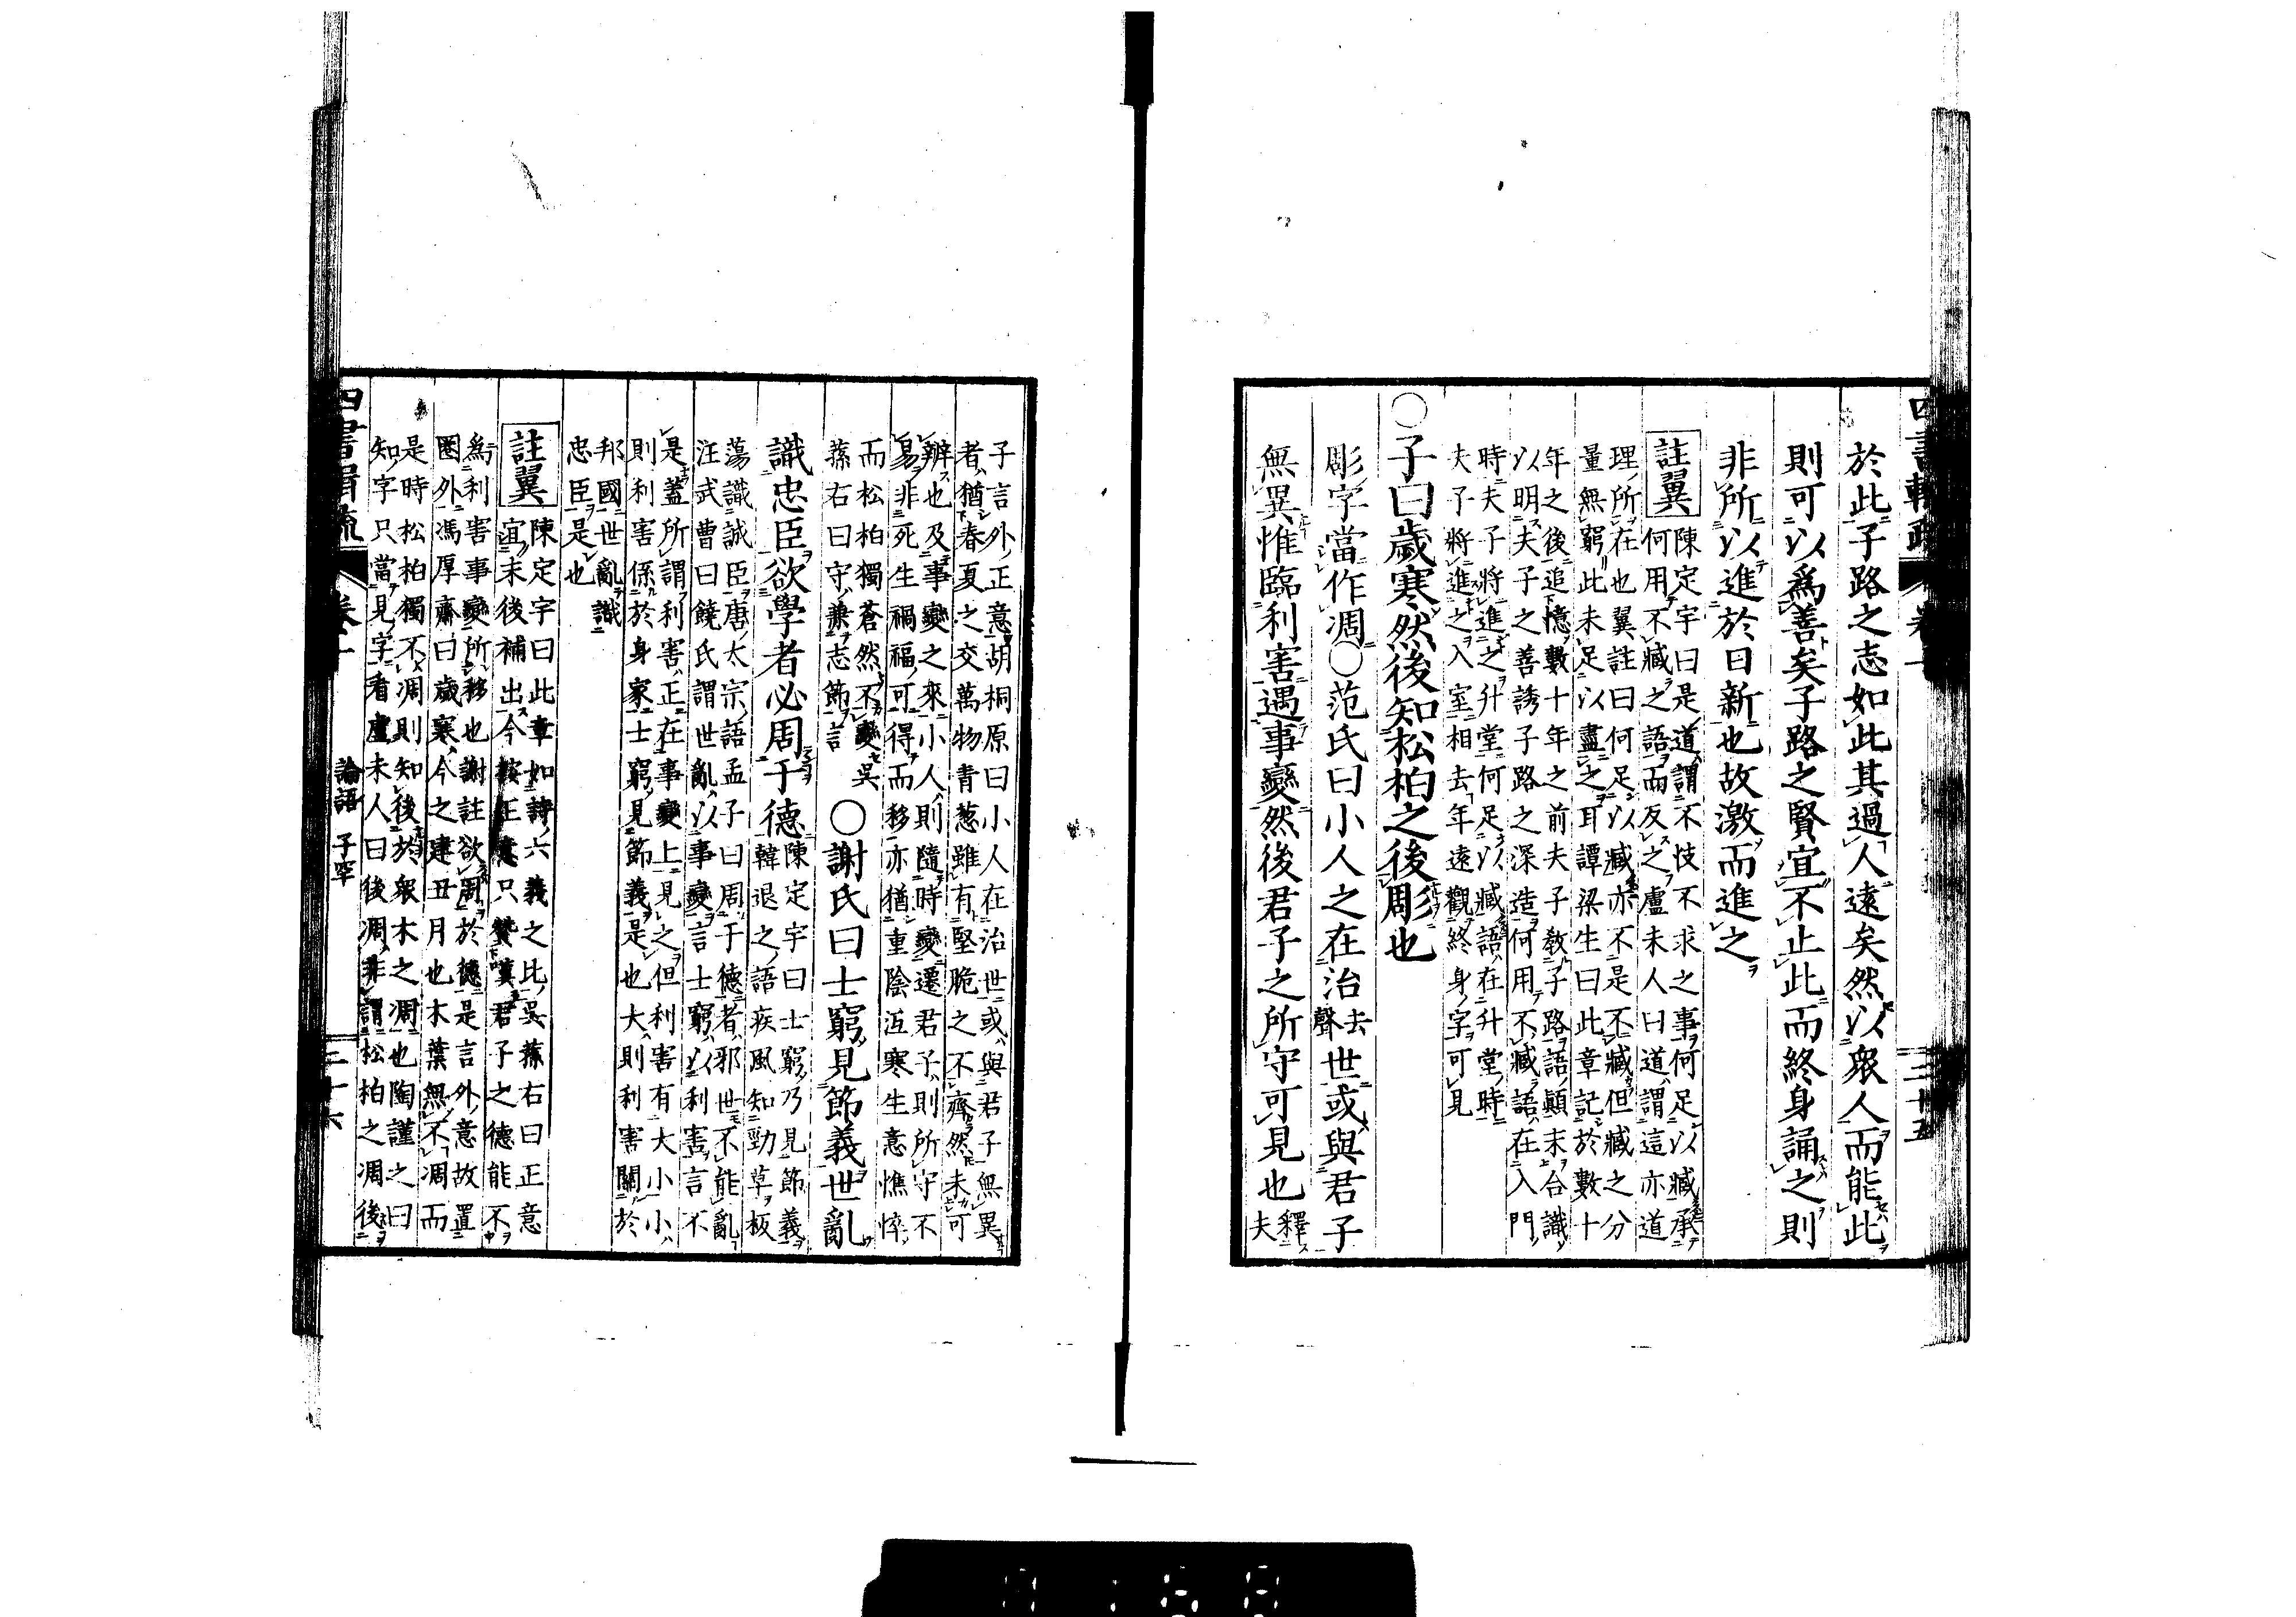 於此子路之志如此其過人遠矣然以衆人而能此
則可以爲善矣子路之賢宜不止此而終身誦之則
非所以進於日新也故激而進之
註翼
陳定宇曰是道謂不忮不求之事何足以臧承
何用不臧之語而反之盧未人曰道謂這亦道
理所在也翼註曰何足以臧亦不是不臧但臧之分
量無窮此未足以盡之耳譚梁生曰此章記於數十
年之後追憶數十年之前夫子教子路語顛末合識
以明夫子之善誘子路之深造何用不臧語在入門
時夫子將進之升堂何足以臧語在升堂時
夫子將進之入室相去年遠觀終身字可見
○子曰歲寒然後知松柏之後彫也
彫字當作凋○范氏曰小人之在治去聲世或與君子
無異惟臨利害遇事變然後君子之所守可見也釋夫
子言外正意胡桐原曰小人在治世或與君子無異
者猶春夏之交萬物青葱雖有堅脆之不齊然未可
辨也及事變之來小人則隨時變遷君子則所守不
易非死生禍福可得而移亦猶重陰沍寒生意憔悴
而松柏獨蒼然不變吳
蓀右曰守兼志節言
○謝氏曰士窮見節義世亂
識忠臣欲學者必周于德
陳定宇曰士窮乃見節義
韓退之語疾風知勁草板
蕩識誠臣唐太宗語孟子曰周于德者邪世不能亂
汪武曹曰饒氏謂世亂以事變言士窮以利害言不
是蓋所謂利害正在事變上見之但利害有大小小
則利害係於身家士窮見節義是也大則利害關於
邦國世亂識
忠臣是也
註翼
陳定宇曰此章如詩六義之比吳蓀右曰正意
宜末後補出今按正意只贊嘆君子之德能不
爲利害事變所移也謝註欲周於德是言外意故置
圈外馮厚齋曰歲寒今之建丑月也木葉無不凋而
是時松柏獨不凋則知後於衆木之凋也陶謹之曰
知字只當見字看盧未人曰後凋非謂松柏之凋後
論語 子罕
二十六